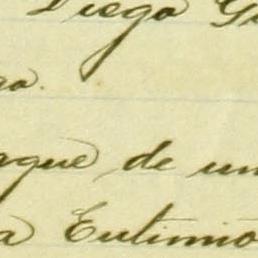 Diego G
go.
aque de un
a Eutimio